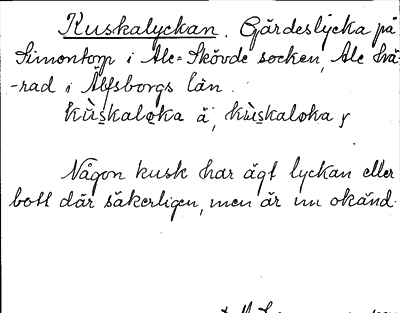 Kuskalyckan. Gärdeslycka på
Simontorp i Ale-Skövde socken, Ale hä-
-rad i Älfsborgs län.
kùskaloka ä, kùskaloka
Någon kusk har ägt lyckan eller
bott där säkerligen, men är nu okänd.